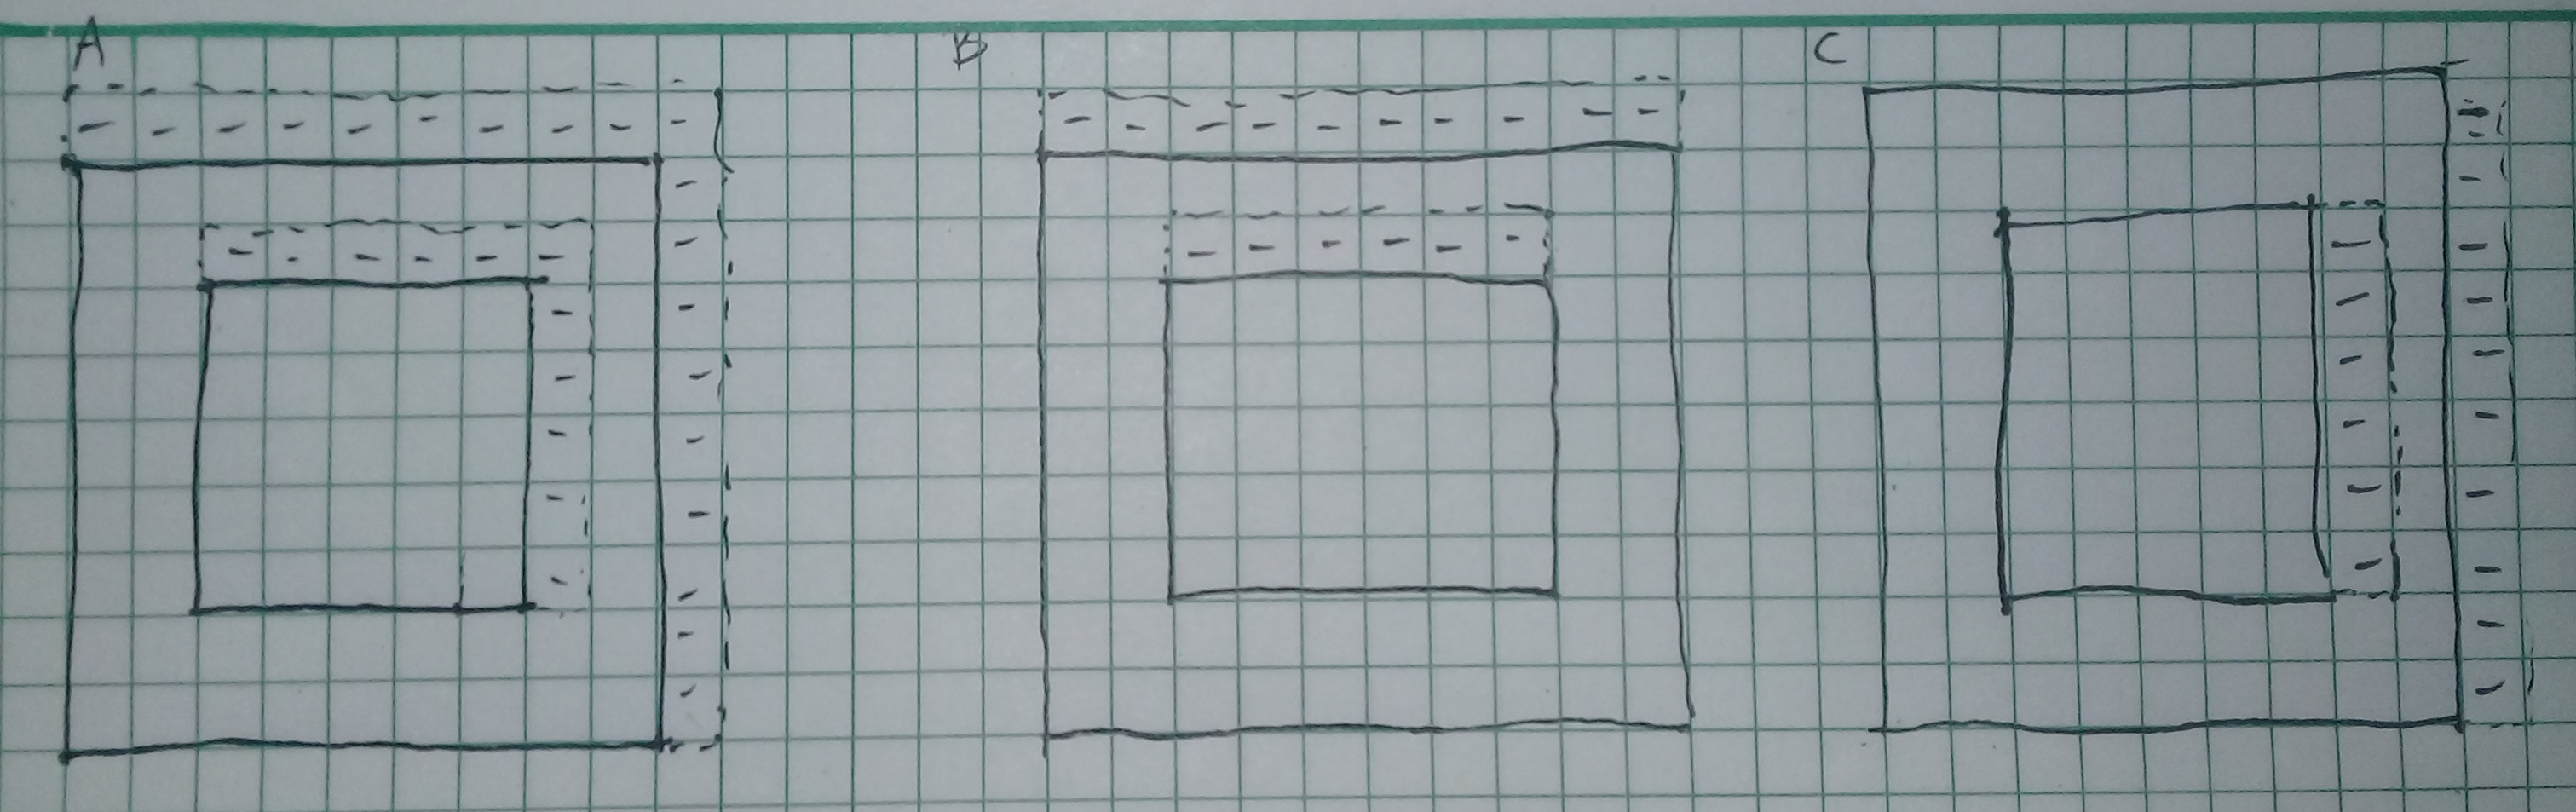 A B C